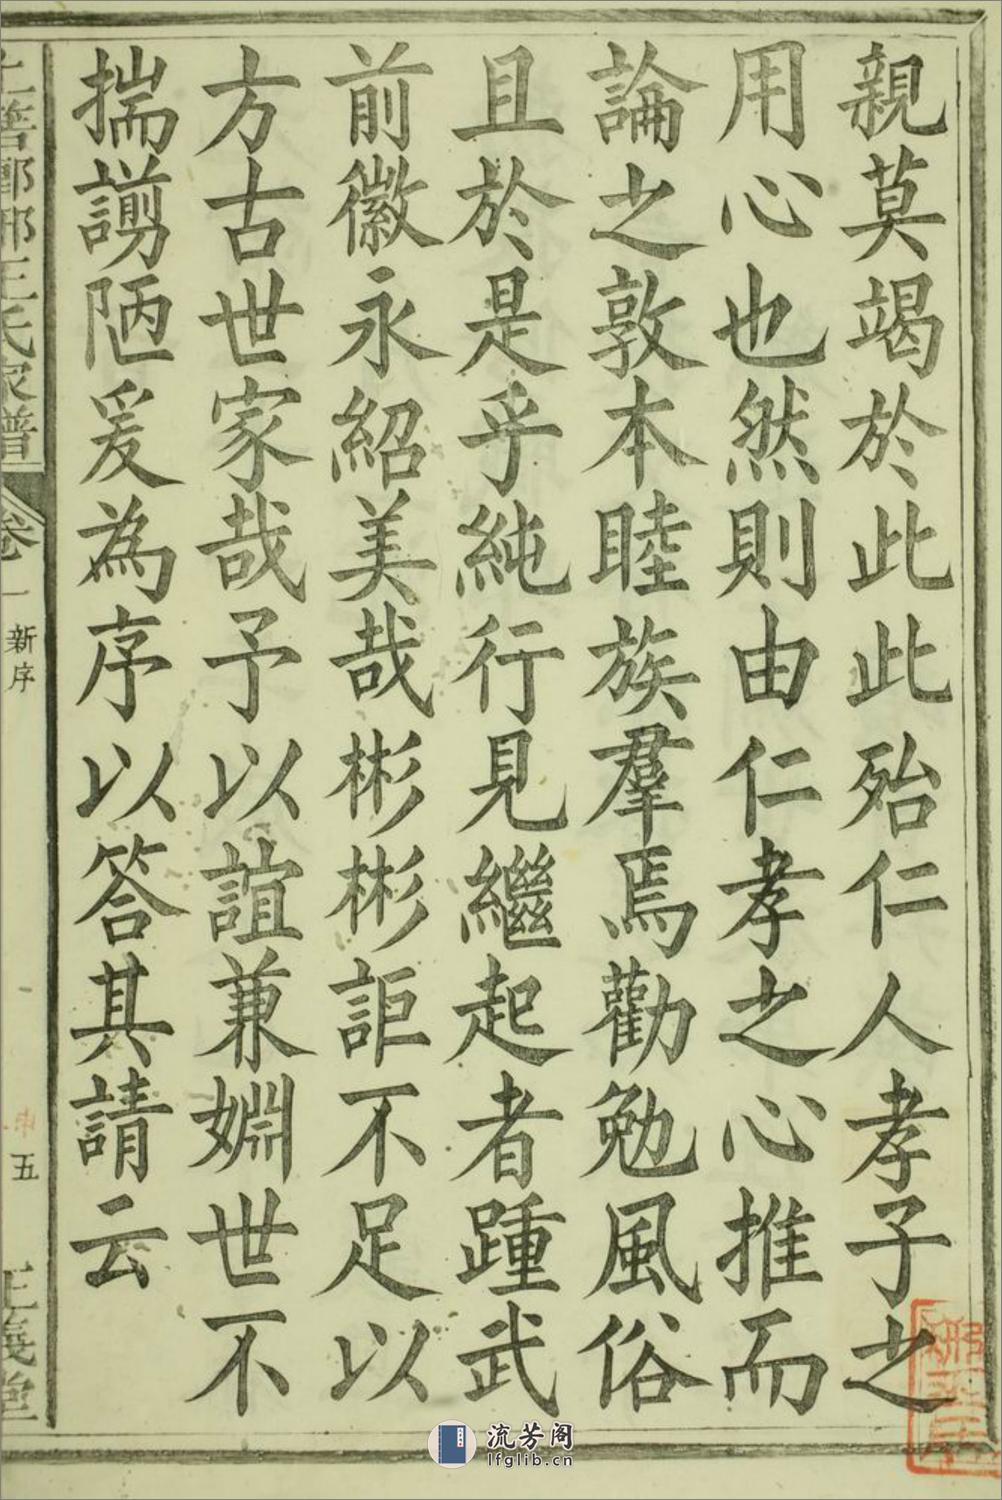 親莫竭於此此殆仁人孝子之
用心也然則由仁孝之心推而
論之敦本睦族羣焉勸勉風俗
且於是乎純行見繼起者踵武
前徽永紹美哉彬彬詎不足以
方古世家哉予以誼兼婣世不
揣謭陋爰為序以答其請云
王氏家譜
卷一
新序
五
流芳阁
lfglib.cn